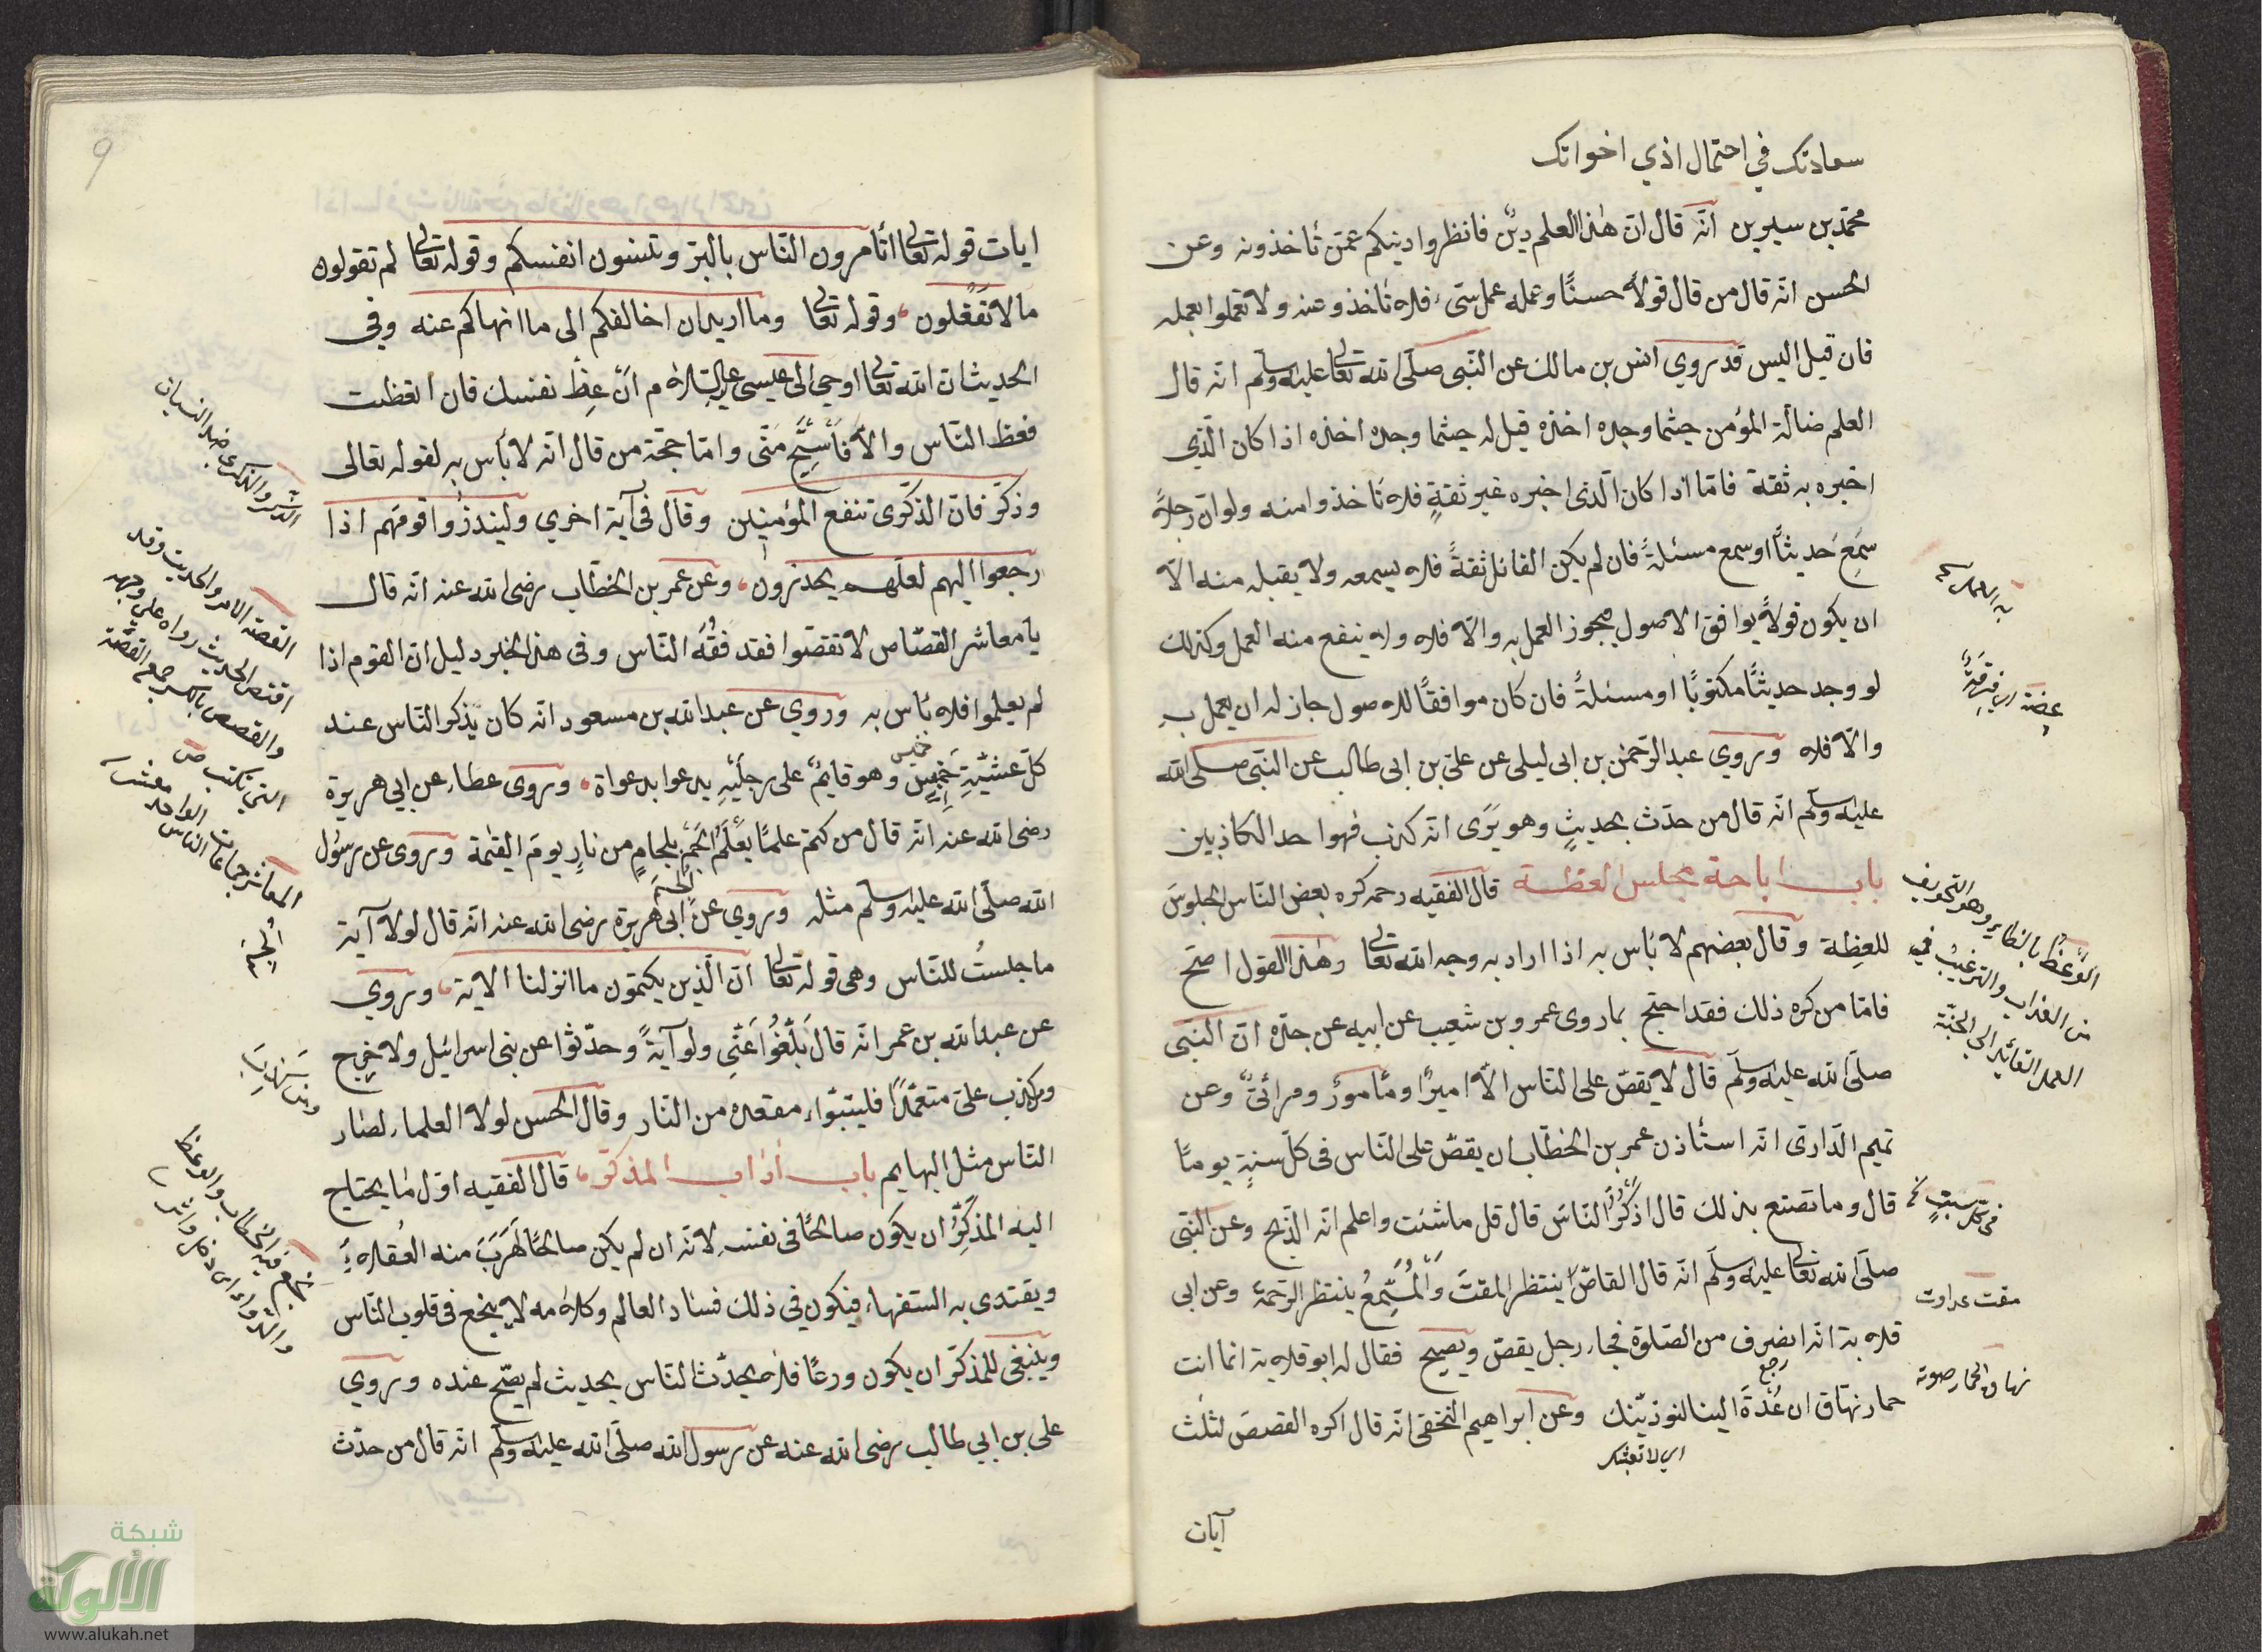 سعادتك في احتمال اذي اخوانك
محمّد بن سيرين انّه قال ان هذا العلم دينٌ فانظروا دينكم عمّن تأخذونه وعن
الحسن انّه قال من قال قولاً حسنًا وعمله عمل سيّء فلا تأخذو عنه ولا تعملوا بعمله
فان قيل اليس قد روي انس بن مالك عن النّبى صلّى الله تعالى عليه وسلّم انّه قال
العلم ضالة المؤمن حيثما وجده اخذه قيل له حيثما وجده اخذه اذا كان الّذي
اخبره به ثقة فامّا اذا كان الّذى اخبره غير ثقةٍ فلا تأخذوا منه ولو انّ رجلاً
سَمِعَ حديثاً او سمع مسئلةً فان لم يكن القائل ثقةً فلا يسمعه ولا يقبله منه الّا
ان يكون قولاً يوافق الاصول فيجوز العمل به والّا فلا ولا ينفع منه العمل وكذلك
لو وجد حديثًا مكتوبًا او مسئلةً فان كان موافقًا للاصول جاز له ان يعمل به
والّا فلا وروي عبد الرّحمن بن ابى ليلى عن علىّ بن ابى طالب عن النّبى صلّى الله
عليه وسلّم انّه قال من حدّث بحديثٍ وهو يَرَى انّه كذب فهوا حد الكاذبين
باب اباحة مجلس العظة قال الفقيه رحمه كره بعض النّاس الجلوسَ
للعِظة وقال بعضهم لا بأس به اذا اراد به وجه الله تعالى وهذا القول اصحّ
فامّا من كره ذلك فقد احتج بما روى عمرو بن شعيب عن ابيه عن جدّه انّ النّبى
صلّى الله عليه وسلّم قال لا يقصّ على النّاس الّا اميرٌ او مأمورٌ ومرائىٌّ وعن
تميم الدّارى انّه استأذن عمر بن الخطّاب ان يقصّ على النّاس فى كلّ سنةٍ يومًا
قال وما تصنع بذلك قال اذكّرُ النّاسَ قال قل ما شئت واعلم انّه الذّبح وعن النّبى
صلّى الله تعالى عليه وسلّم انّه قال القاصّ ينتظر المقتَ والمُستَمِعُ ينتظر الرّحمة وعن ابى
قلابة انّه انصرف من الصّلوة فجاء رجل يقصّ ويصيح فقال له ابو قلابة انما انت
حمار نهّاق ان عُدّةَ الينا لنوذيّنك وعن ابراهيم النّخعى انّه قال اكره القصصَ لثلث
رجع
اى لا تعبثك
آيات
به العمل
عِضَة اى فِرقَةٌ
الوَعْظُ بالظاهر وهو التخويف
من العذاب والترغيب فى
العمل القائد الى الجنّة
فى كلّ سبتٍ
مقت عداوت
نهاق الحمار صوته
9
ايات قوله تعالى أتأمرون النّاس بالبّر وتنسون انفسكم وقوله تعالى لم تقولون
مالا تَفْعَلون وقوله تعالى وما اريدان اخالفكم الى ما انهاكم عنه وفى
الحديث ان الله تعالى اوحى الى عيسى عليه السّلام ان عِظْ نفسك فان اتّعظت
فعظ النّاس والّا فَاسْتَحِّ منّى وامّا حجّة من قال انّه لا بأس به لقوله تعالى
وذكّر فانّ الذكّرى تنفع المؤمنين وقال فى آية اخري ولينذروا قومَهم اذا
رجعوا اليهم لعلّهم يحذرون وعن عمر بن الخطّاب رضى الله عنه انّه قال
يا معاشر القصّاص لا تقصّوا فقد فقُهَ النّاس وفى هذا الخبر دليل انّ القوم اذا
لم يعلموا فلا بأس به وروي عن عبد الله بن مسعود انّه كان يذكر النّاس عند
كلّ عشيّةِ خميسٍ وهو قايمٌ على رجليْهِ يدعوا بدعواة وروى عطاء عن ابى هريرة
رضى الله عنه انّه قال من كتم علمًا يعْلَمُ الجَمَ بلجامٍ من نارٍ يومَ القيمة وروى عن رسُول
الله صلّى الله عليه وسلّم مثله وروي عن ابى هريرة رضى الله عنه انّه قال لولا آية
ما جلستُ للنّاس وهى قوله تعالى انّ الّذين يكتمون ما انزلنا الاية وروي
عن عبد الله بن عمر انّه قال بَلّغُوا عَنّى ولو آيةً وحدّثوا عن بنى اسرائيل ولا حرج
ومن كذب علىّ متعمّدًا فليتبّواء مقعده من النّار وقال الحسن لولا العلماء لصار
النّاس مثل البهايم باب اداب المذكّر قال الفقيه اوّل ما يحتاج
اليه المذكِّرُ ان يكون صالحًا فى نفسه لانّه ان لم يكن صالحًا لهَرَبَ منه العُقلاءُ
ويقتدى به السّفهاء فيكون فى ذلك فساد العالم وكلامه لا ينجع فى قلوب النّاس
وينبغى للمذكّر ان يكون ورعًا فلا يحدّث النّاس بحديث لم يصّح عنده وروي
على بن ابى طالب رضى الله عنه عن رسول الله صلّى الله عليه وسلّم انّه قال من حدّث
خميس
الجَمَ
الذكر والذكرى ضد النسيان
القصّة الامر والحديث وقد
اقتص الحديث رواه على وجهه
والقصص بالكسر جمع القصّة
التى تكتب
المعاشر جماعات الناس الواحد معشر
اُلجِمَ
شبكة
الألوكة
www.alukah.net